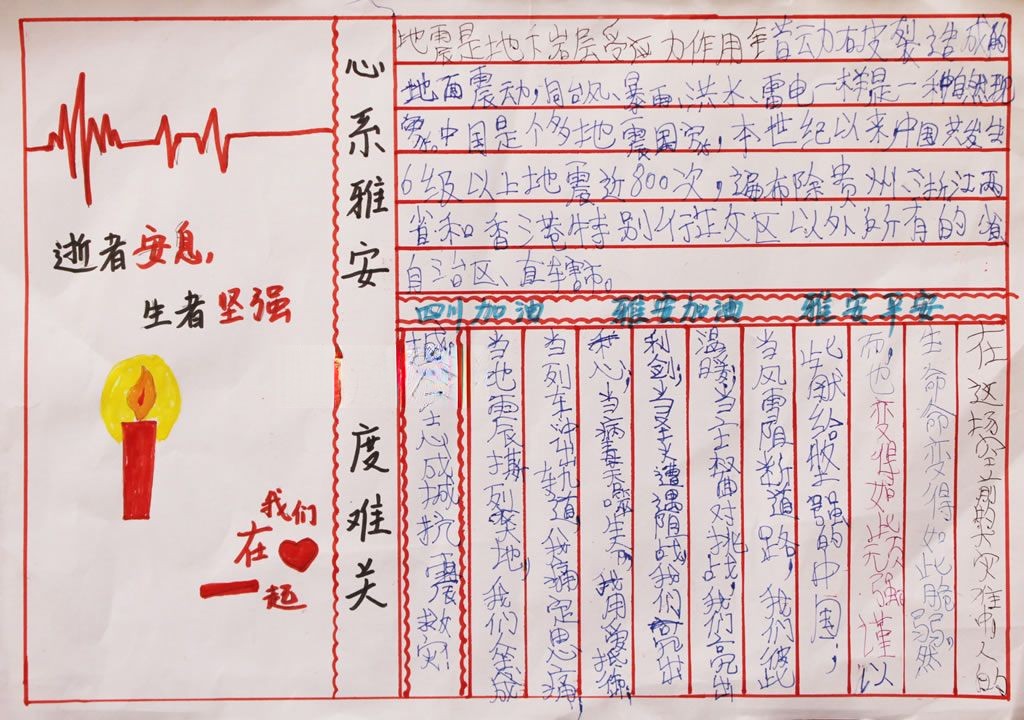 逝者安息,
生者坚强
我们
在
一起
心系雅安 度难关
地震是地下岩层受 力作用 造成的
地面震动,同台风、暴雨、洪水、雷电一样是一种自然现
象。中国是个多地震国家,本世纪以来,中国共发生
6级以上地震近800次,遍布除贵州、浙江两
省和香港特别行政区以外所有的省
自治区、直辖市。
四川加油 雅安加油 雅安平安
在这场空前的大灾难中,人的
生命变得如此脆弱,然
而,也变得如此顽强,谨以
此献给坚强的中国;
当风雪阻断道路,我们彼此
温暖;当主权面对挑战,我们亮出
利剑;当圣火遭遇阻战,我们亮出
心;当病毒 生 ,我用爱抵御;
当列车冲出轨道,我痛定思痛,
当地震撕裂大地,我们坐成
城。 心成城抗震救灾!